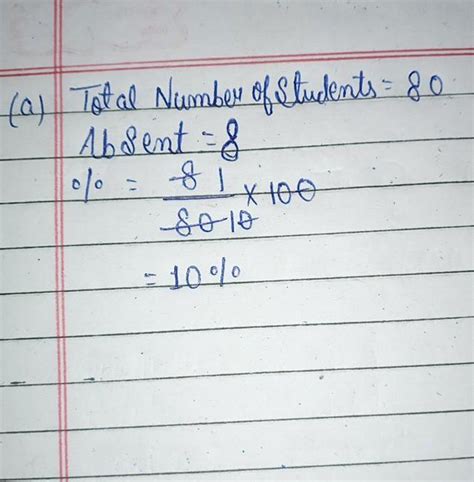 (a) Total Number of Students = 80
Absent = 8
% = 8 1
80 10 × 100
= 10%